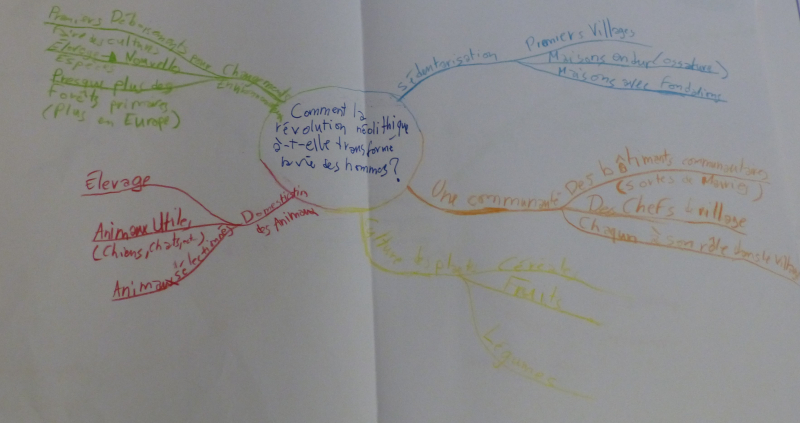 Comment la
révolution néolithique
à-t-elle transformé
la vie des hommes?
Sédentarisation
Premiers Villages
Maisons en dur (ossature)
Maisons avec Fondations
Une communauté
Des bâtiments communautaires
(sortes de Mairies)
Des Chefs village
Chaqun à son rôle dans le village
Culture
Fruits
Légumes
Domestication
des Animaux
Élevage
Animaux Utiles
(Chiens, Chats,
Animaux
sélectionnés
Changements
Premiers Déboisements pour
Faire les cultures
Nouvelles
Espèces
Presque plus des
Forêts primaires
(Plus en Europe)